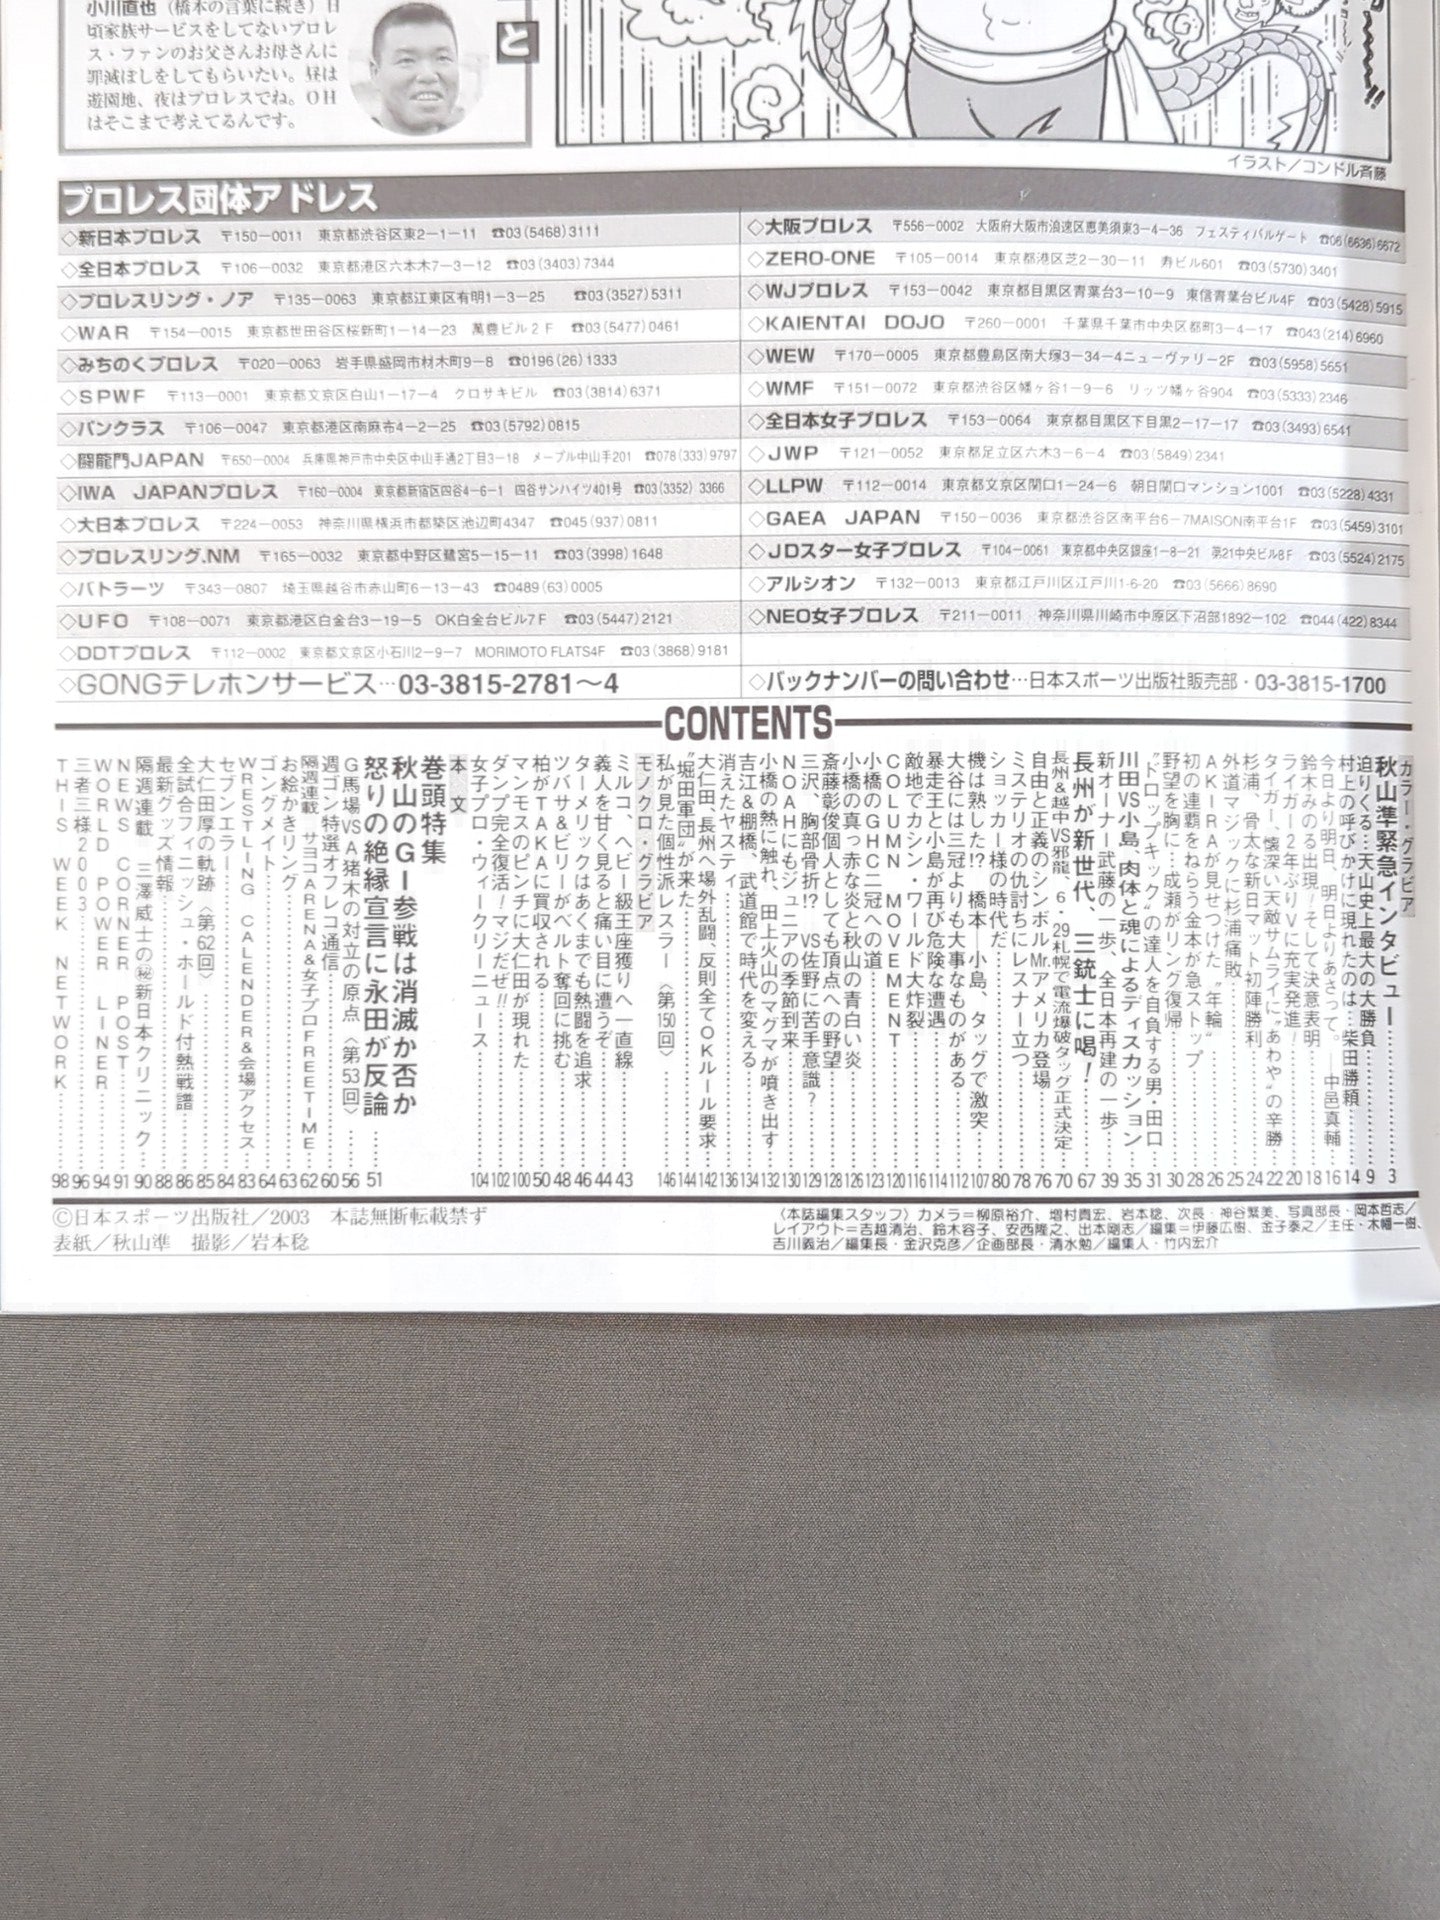 小川直也（橋本の言葉に続き）日
頃家族サービスをしてないプロレ
ス・ファンのお父さんお母さんに
罪滅ぼしをしてもらいたい。昼は
遊園地、夜はプロレスでね。OH
はそこまで考えてるんです。
と
イラスト／コンドル斉藤
プロレス団体アドレス
◇新日本プロレス 〒150－0011 東京都渋谷区東2－1－11 ☎03(5468)3111
◇全日本プロレス 〒106－0032 東京都港区六本木7－3－12 ☎03(3403)7344
◇プロレスリング・ノア 〒135－0063 東京都江東区有明1－3－25 ☎03(3527)5311
◇WAR 〒154－0015 東京都世田谷区桜新町1－14－23 萬豊ビル2F ☎03(5477)0461
◇みちのくプロレス 〒020－0063 岩手県盛岡市材木町9－8 ☎0196(26)1333
◇SPWF 〒113－0001 東京都文京区白山1－17－4 クロサキビル ☎03(3814)6371
◇パンクラス 〒106－0047 東京都港区南麻布4－2－25 ☎03(5792)0815
◇闘龍門JAPAN 〒650－0004 兵庫県神戸市中央区中山手通2丁目3－18 メープル中山手201 ☎078(333)9797
◇IWA JAPANプロレス 〒160－0004 東京都新宿区四谷4－6－1 四谷サンハイツ401号 ☎03(3352)3366
◇大日本プロレス 〒224－0053 神奈川県横浜市都築区池辺町4347 ☎045(937)0811
◇プロレスリング.NM 〒165－0032 東京都中野区鷺宮5－15－11 ☎03(3998)1648
◇バトラーツ 〒343－0807 埼玉県越谷市赤山町6－13－43 ☎0489(63)0005
◇UFO 〒108－0071 東京都港区白金台3－19－5 OK白金台ビル7F ☎03(5447)2121
◇DDTプロレス 〒112－0002 東京都文京区小石川2－9－7 MORIMOTO FLATS4F ☎03(3868)9181
◇GONGテレホンサービス…03-3815-2781～4
◇大阪プロレス 〒556－0002 大阪府大阪市浪速区恵美須東3－4－36 フェスティバルゲート ☎06(6636)6672
◇ZERO-ONE 〒105－0014 東京都港区芝2－30－11 寿ビル601 ☎03(5730)3401
◇WJプロレス 〒153－0042 東京都目黒区青葉台3－10－9 東信青葉台ビル4F ☎03(5428)5915
◇KAIENTAI DOJO 〒260－0001 千葉県千葉市中央区都町3－4－17 ☎043(214)6960
◇WEW 〒170－0005 東京都豊島区南大塚3－34－4ニューヴァリー2F ☎03(5958)5651
◇WMF 〒151－0072 東京都渋谷区幡ヶ谷1－9－6 リッツ幡ヶ谷904 ☎03(5333)2346
◇全日本女子プロレス 〒153－0064 東京都目黒区下目黒2－17－17 ☎03(3493)6541
◇JWP 〒121－0052 東京都足立区六木3－6－4 ☎03(5849)2341
◇LLPW 〒112－0014 東京都文京区関口1－24－6 朝日関口マンション1001 ☎03(5228)4331
◇GAEA JAPAN 〒150－0036 東京都渋谷区南平台6－7MAISON南平台1F ☎03(5459)3101
◇JDスター女子プロレス 〒104－0061 東京都中央区銀座1－8－21 第21中央ビル8F ☎03(5524)2175
◇アルシオン 〒132－0013 東京都江戸川区江戸川1-6-20 ☎03(5666)8690
◇NEO女子プロレス 〒211－0011 神奈川県川崎市中原区下沼部1892－102 ☎044(422)8344
◇バックナンバーの問い合わせ…日本スポーツ出版社販売部・03-3815-1700
CONTENTS
カラー・グラビア
秋山準緊急インタビュー……3
迫りくる…天山史上最大の大勝負……9
村上の呼びかけに現れたのは…柴田勝頼……14
今日より明日、明日よりあさって。―中邑真輔……16
鈴木みのる出現！そして決意表明……18
ライガー2年ぶりVに充実発進！……20
タイガー、懐深い天敵サムライに〝あわや〟の辛勝……22
杉浦、骨太な新日マット初陣勝利……24
外道マジックに杉浦痛敗……25
AKIRAが見せつけた〝年輪〟……26
初の連覇をねらう金本が急ストップ……28
野望を胸に…成瀬がリング復帰……30
〝ドロップキック〟の達人を自負する男・田口……31
川田VS小島、肉体と魂によるディスカッション……35
新オーナー武藤の一歩、全日本再建の一歩……39
長州が新世代、三銃士に喝！……67
長州＆越中VS邪龍、6・29札幌で電流爆破タッグ正式決定……70
自由と正義のシンボルMr.アメリカ登場……76
ミステリオの仇討ちにレスナー立つ……78
ショッカー様の時代だ……80
機は熟した!? 橋本―小島、タッグで激突……107
大谷には三冠よりも大事なものがある……112
暴走王と小島が再び危険な遭遇……114
敵地でカシン・ワールド大炸裂……116
COLUMN MOVEMENT……120
小橋のGHC二冠への道……123
小橋の真っ赤な炎と秋山の青白い炎……126
斎藤彰俊個人としても頂点への野望……128
三沢、胸部骨折!? VS佐野に苦手意識？……129
NOAHにもジュニアの季節到来……130
小橋の熱に触れ、田上火山のマグマが噴き出す……132
吉江＆棚橋、武道館で時代を変える……134
消えたヤスティ……136
大仁田、長州へ場外乱闘、反則全てOKルール要求……142
〝堀田軍団〟が来た……144
私が見た個性派レスラー〈第150回〉……146
モノクロ・グラビア
ミルコ、ヘビー級王座獲りへ一直線……43
義人を甘く見ると痛い目に遭うぞ……44
ターメリックはあくまでも熱闘を追求……46
ツバサ＆ビリーがベルト奪回に挑む……48
柏がTAKAに買収される……50
マンモスのピンチに大仁田が現れた……100
ダンプ完全復活！マジだぜ!!……102
女子プロ・ウィークリーニュース……104
本 文
巻頭特集
秋山のG1参戦は消滅か否か
怒りの絶縁宣言に永田が反論……51
G馬場VSA猪木の対立の原点〈第53回〉……56
週ゴン特選オフレコ通信……60
隔週連載 サヨコARENA＆女子プロFREETIME……62
お絵かきリング……63
ゴングメイト……64
WRESTLING CALENDER＆会場アクセス……83
セブンエラー……84
大仁田厚の軌跡〈第62回〉……85
全試合フィニッシュ・ホールド付熱戦譜……86
最新グッズ情報……88
隔週連載 三澤威士の㊙新日本クリニック……90
NEWS CORNER POST……91
WORLD POWER LINER……94
三者三様2003……96
THIS WEEK NETWORK……98
©日本スポーツ出版社／2003 本誌無断転載禁ず
表紙／秋山準 撮影／岩本稔
（本誌編集スタッフ）カメラ＝柳原裕介、増村貴宏、岩本稔、次長・神谷繁美、写真部長・岡本哲志／
レイアウト＝吉越清治、鈴木容子、安西隆之、出本剛志／編集＝伊藤広樹、金子泰之／主任・木幡一樹、
吉川義治／編集長・金沢克彦／企画部長・清水勉／編集人・竹内宏介